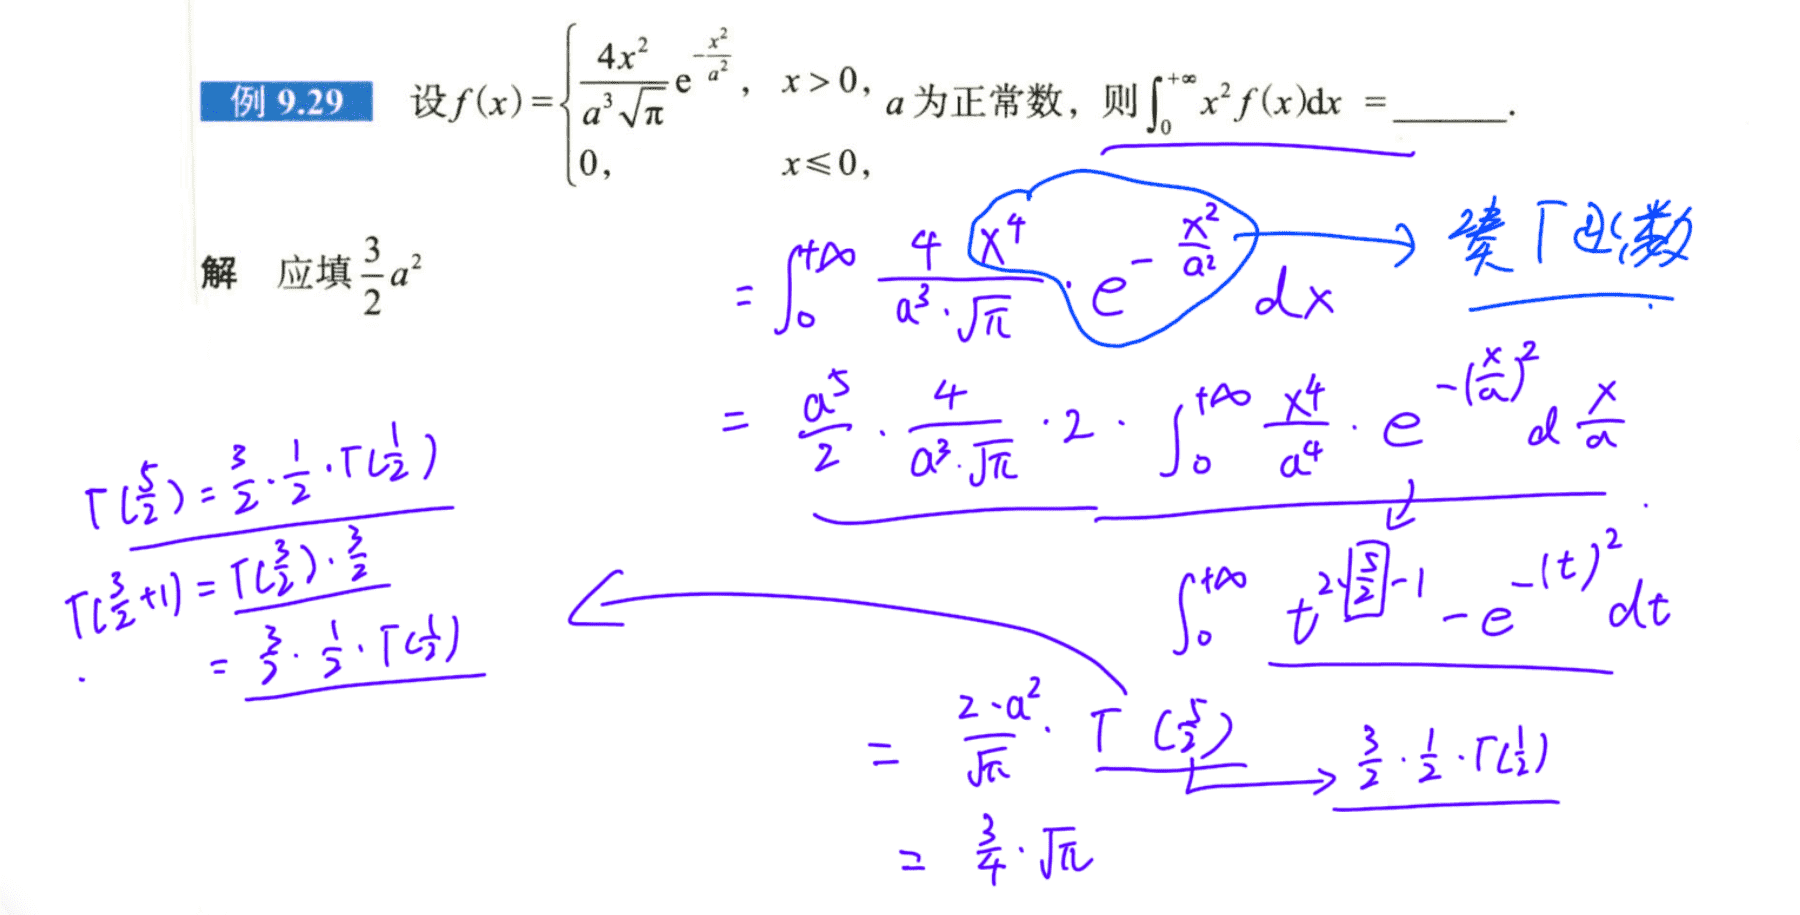 例 9.29 设 f(x) = { 4x²/(a³√π) e^(-x²/a²), x > 0, 0, x ≤ 0, a 为正常数，则 ∫₀^{+∞} x² f(x)dx = ______.
解 应填 3/2 a²
= ∫₀^{+∞} 4x⁴/(a³·√π) · e^(-x²/a²) dx → 凑 Γ 函数
= a⁵/2 · 4/(a³·√π) · 2 · ∫₀^{+∞} x⁴/a⁴ · e^(-(x/a)²) d x/a
∫₀^{+∞} t^(2·5/2-1) - e^(-(t)²) dt
= 2·a²/√π · Γ(5/2) → 3/2 · 1/2 · Γ(1/2)
= 3/4 · √π
Γ(5/2) = 3/2 · 1/2 · Γ(1/2)
Γ(3/2+1) = Γ(3/2) · 3/2
= 3/2 · 1/2 · Γ(1/2)